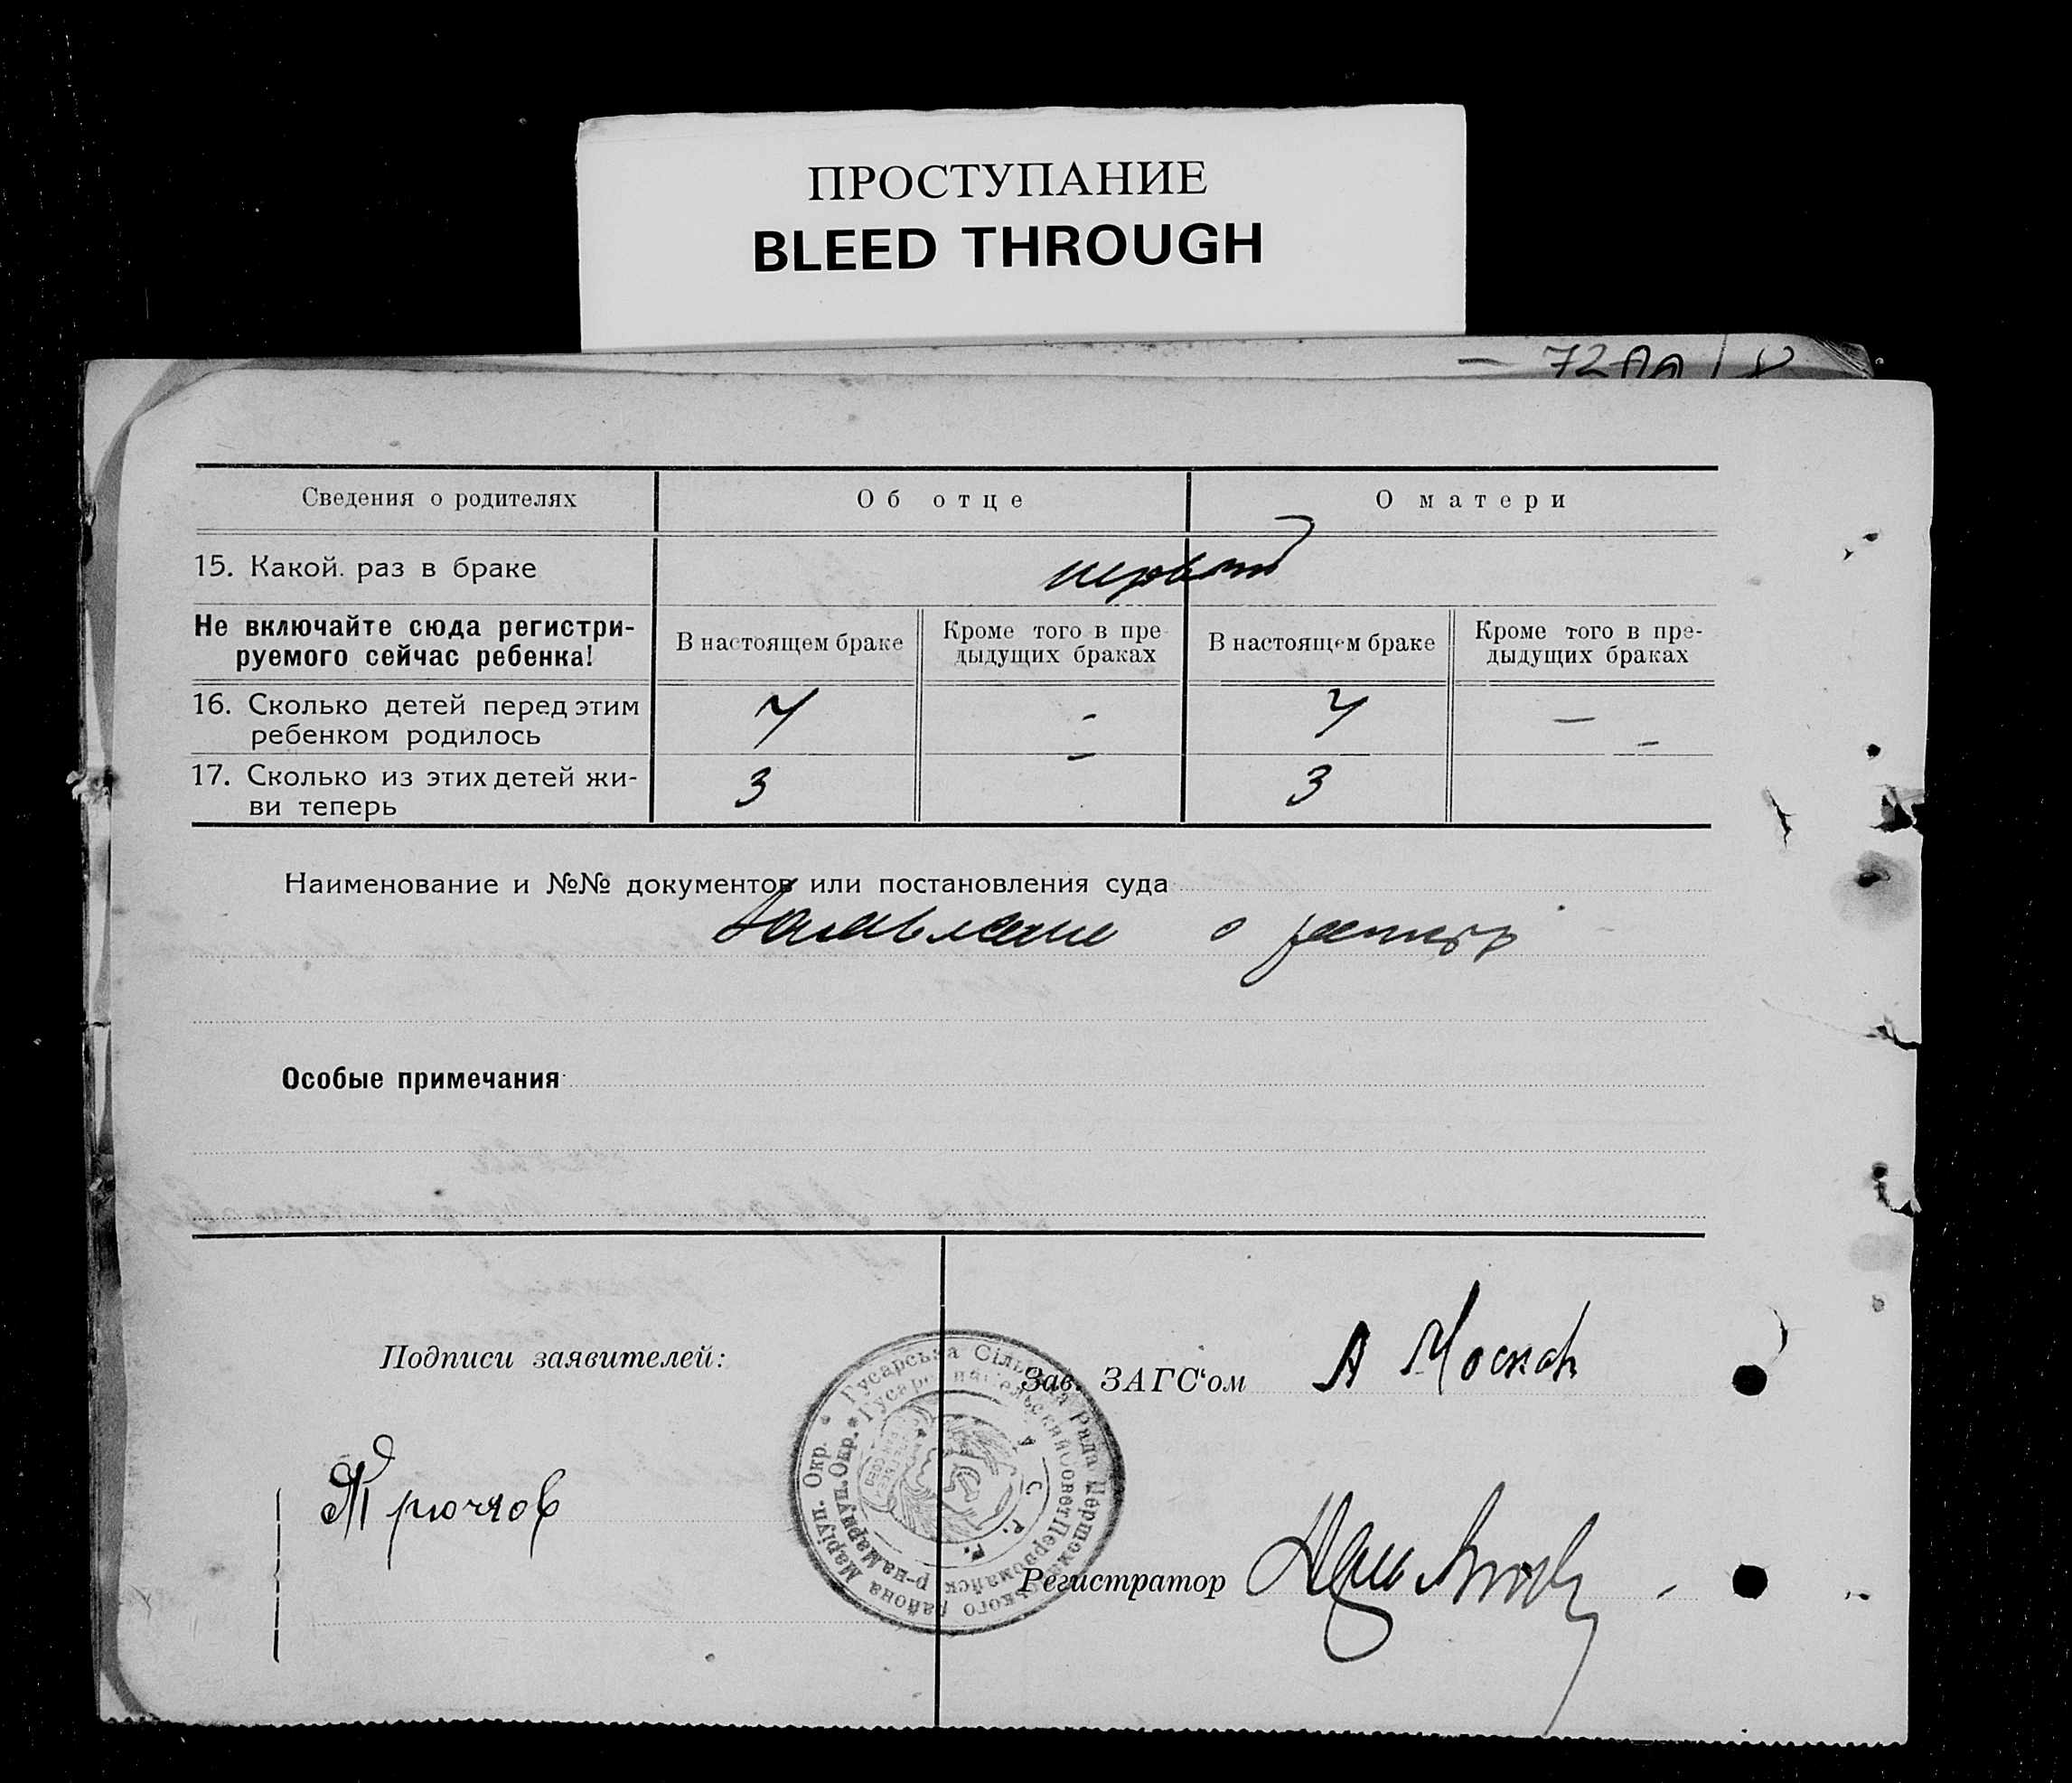 ПРОСТУПАНИЕ
BLEED THROUGH
Сведения о родителях Об отце О матери
15. Какой. раз в браке первый
Не включайте сюда регистри-
руемого сейчас ребенка!
В настоящем браке
Кроме того в пре-
дыдущих браках
В настоящем браке
Кроме того в пре-
дыдущих браках
16. Сколько детей перед этим
ребенком родилось
4 - 4 —
17. Сколько из этих детей жи-
ви теперь
3 - 3 -
Наименование и №№ документов или постановления суда
Заявление о
Особые примечания
Подписи заявителей:
Зав. ЗАГС‘ом А Москов
Гусарська Сільська Рада Першомайського района Маріуп. Окр.
Гусарский сельский совет Первомайск. р-на Мариуп. Окр.
Трючков
Регистратор